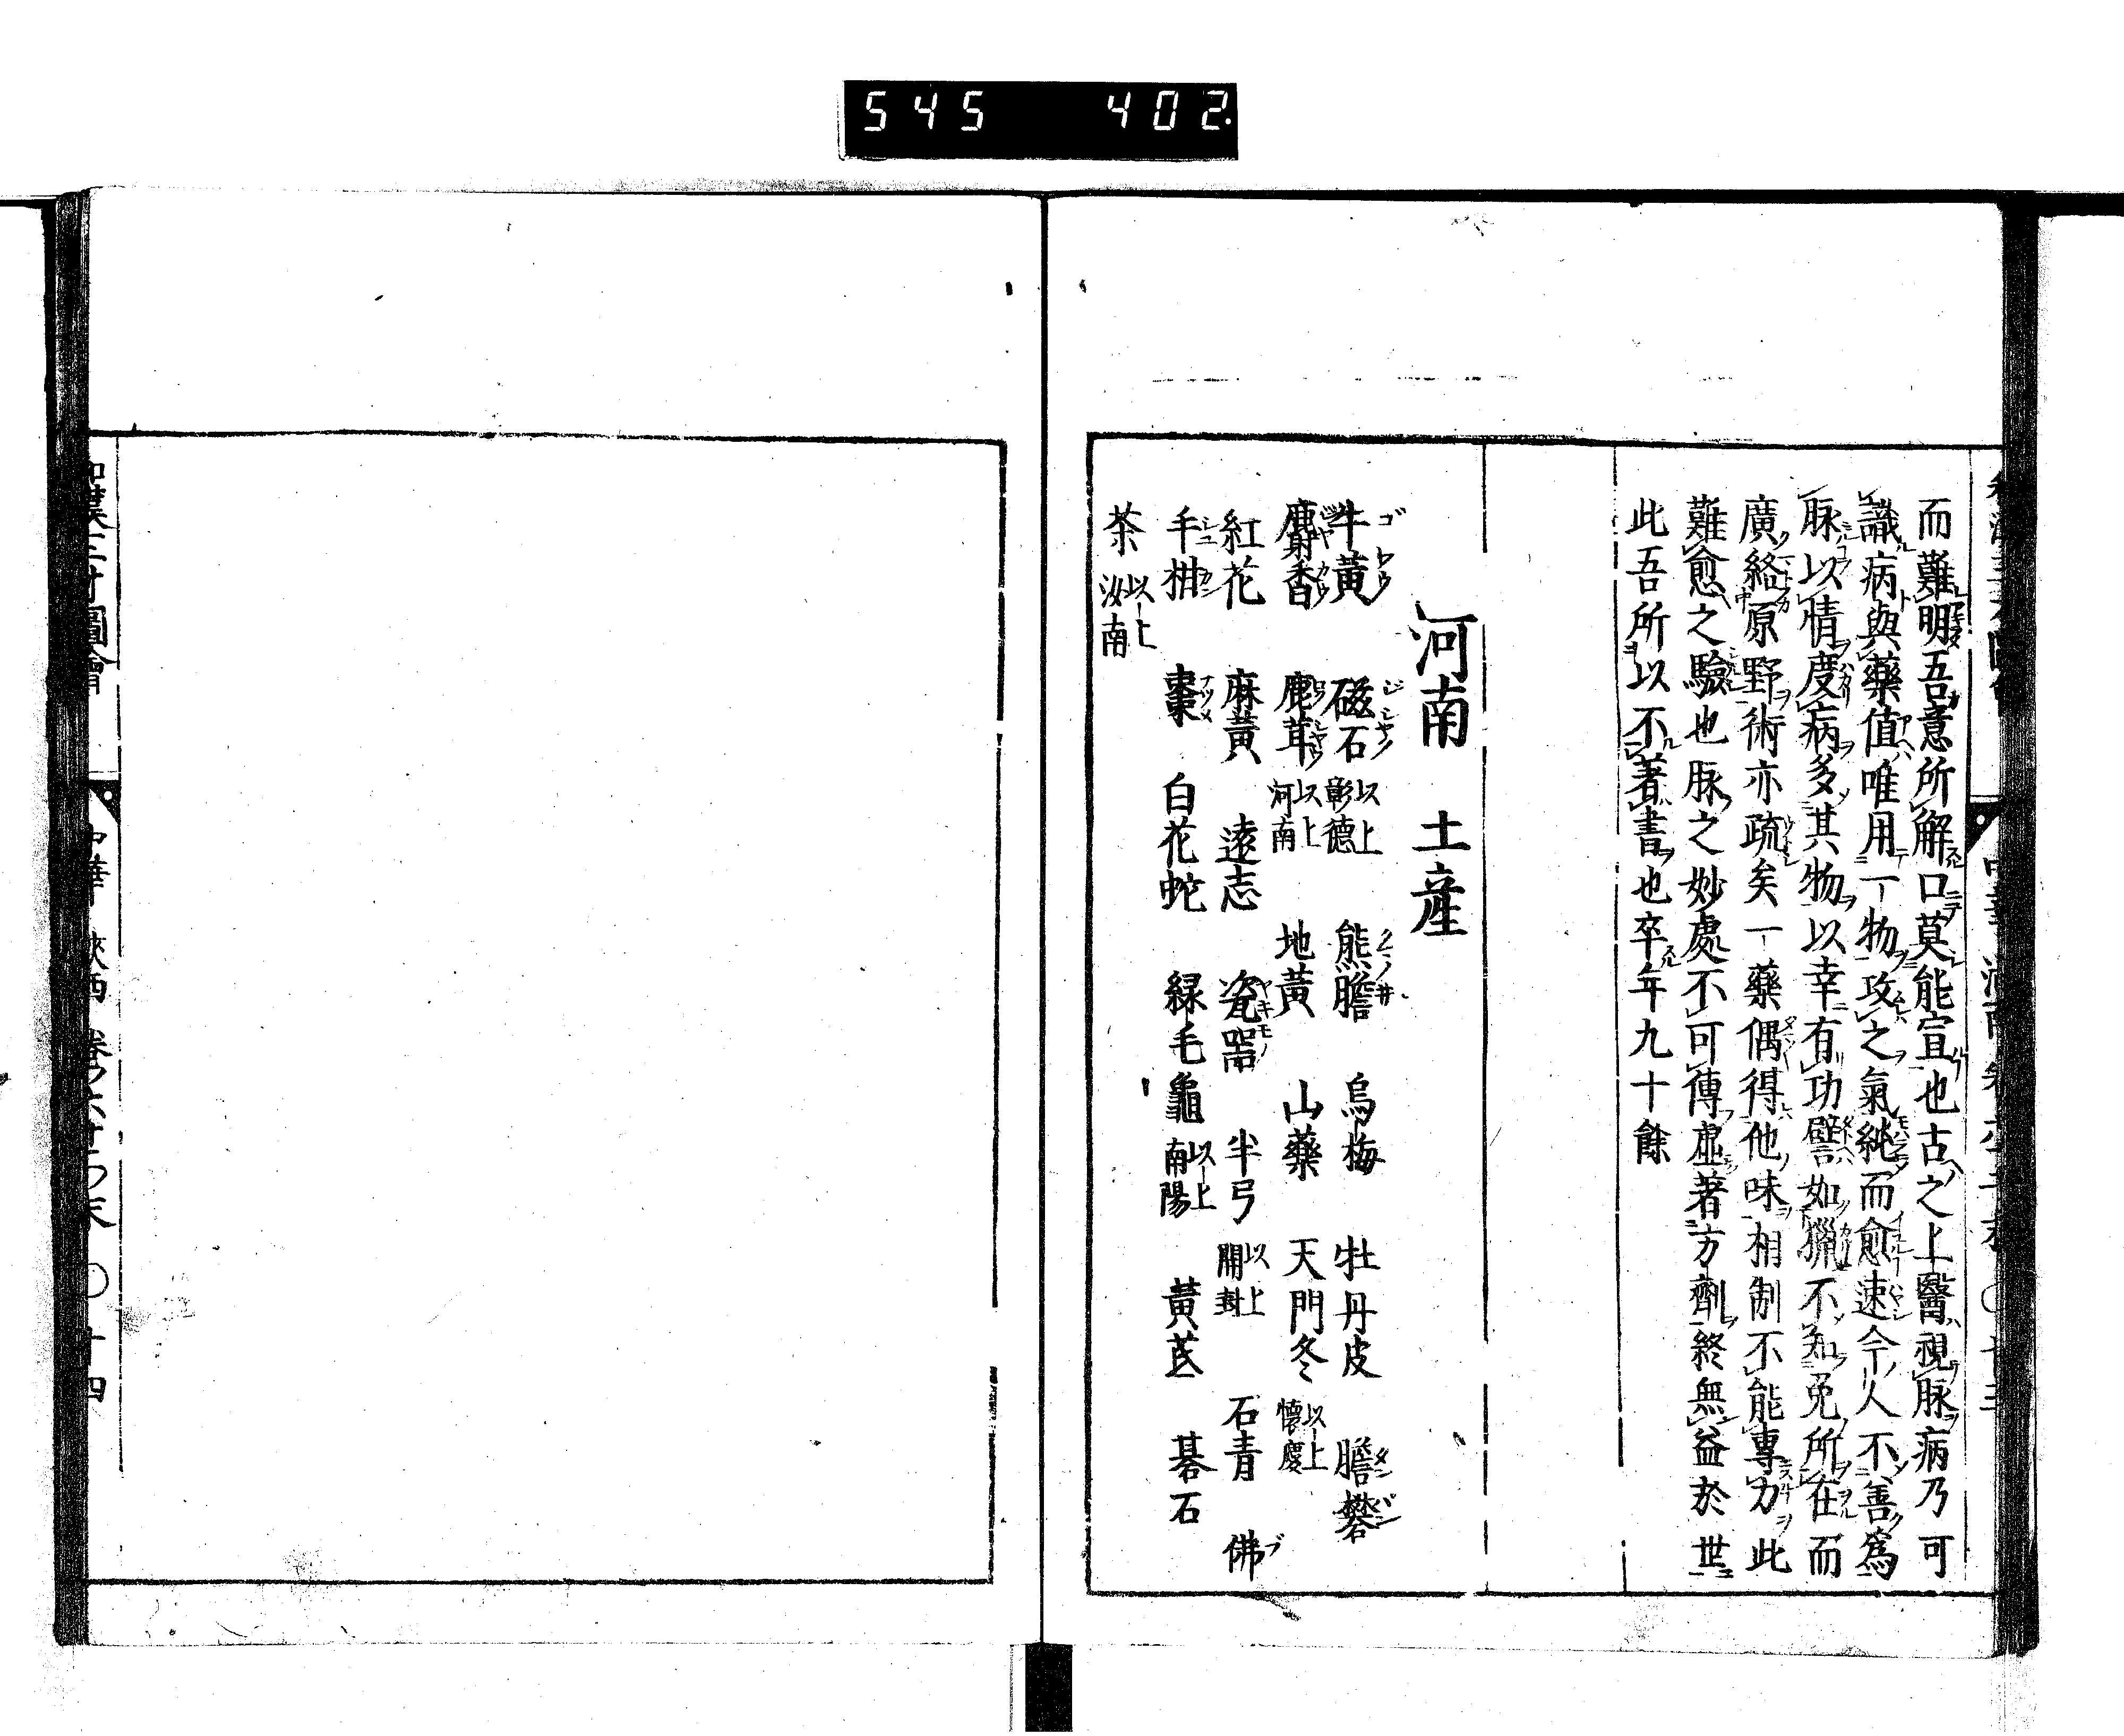 545 402
而難明吾意所解口莫能宣也古之上醫視脉病乃可
識病與藥値唯用一物攻之氣純而愈速今人不善爲
脉以情度病多其物以幸有功譬如獵不知兎所在而
廣絡原野術亦疏矣一藥偶得他味相制不能專力此
難愈之驗也脉之妙處不可傳虛著方劑終無益於世
此吾所以不著書也卒年九十餘
河南 土産
牛黃 磁石 以上彰德 熊膽 烏梅 牡丹皮 膽礬
麝香 鹿茸 以上河南 地黃 山藥 天門冬 以上懷慶
紅花 麻黃 遠志 瓷器 半弓 以上開封 石青 佛
手柑 棗 白花蛇 緑毛龜 以上南陽 黃芪 碁石
茶 以上汝南